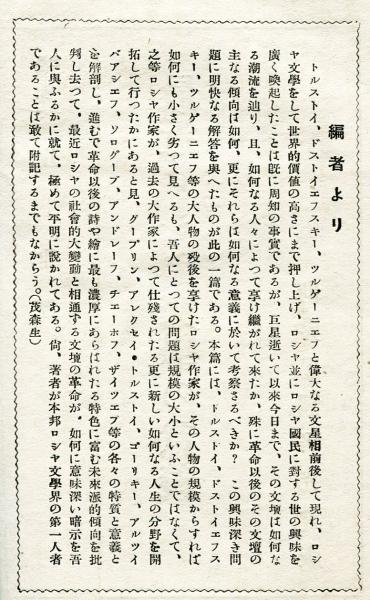 編者より
トルストイ、ドストイエフスキー、ツルゲーニエフと偉大なる文星相前後して現れ、ロシ
ヤ文學をして世界的價値の高さにまで押し上げ、ロシヤ並にロシヤ國民に對する世の興味を
廣く喚起したことは既に周知の事實であるが、巨星逝いて以來今日まで、その文壇は如何な
る潮流を辿り、且、如何なる人々によつて享け繼がれて來たか、殊に革命以後のその文壇の
主なる傾向は如何、更にそれらは如何なる意義に於いて考察さるべきか? この興味深き問
題に明快なる解答を與へたものが此の一篇である。本篇には、ドルストイ、ドストイエフス
キー、ツルゲーニエフ等の大人物の歿後を享けたロシヤ作家が、その人物の規模からすれば
如何にも小さく劣つて見へるも、吾人にとつての問題は規模の大小といふことではなくて、
之等ロシヤ作家が、過去の大作家によつて仕殘されたる更に新しい如何なる人生の分野を開
拓して行つたかにあると見、クープリン、アレクセイ・トルストイ、ゴーリキー、アルツイ
バアシエフ、ソログープ、アンドレーフ、チエーホフ、ザイツエフ等の各々の特質と意義と
を解剖し、進むで革命以後の詩や繪に最も濃厚にあらはれたる特色に富む未來派的傾向を批
判し去つて、最近ロシヤの社會的大變動と相通ずる文壇の革命が、如何に意味深い暗示を吾
人に與ふるかに就て、極めて平明に說かれてある。尙、著者が本邦ロシヤ文學界の第一人者
であることは敢て附記するまでもなからう。(茂森生)